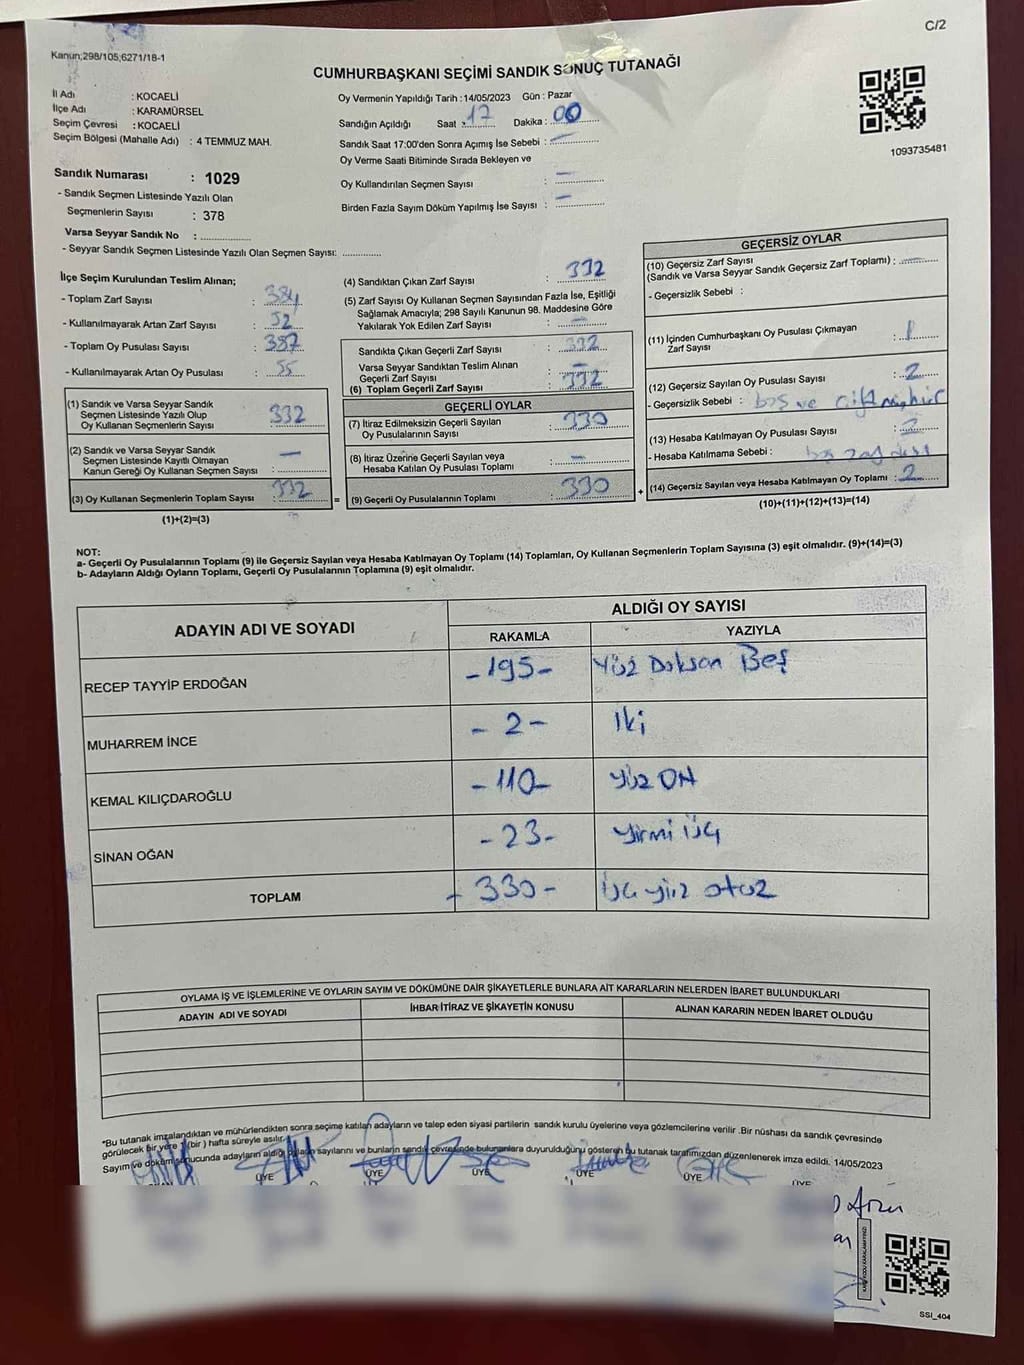 C/2
Kanun;298/105;6271/18-1
CUMHURBAŞKANI SEÇİMİ SANDIK SONUÇ TUTANAĞI
İl Adı : KOCAELİ
İlçe Adı : KARAMÜRSEL
Seçim Çevresi : KOCAELİ
Seçim Bölgesi (Mahalle Adı) : 4 TEMMUZ MAH.
Oy Vermenin Yapıldığı Tarih : 14/05/2023 Gün : Pazar
Sandığın Açıldığı Saat : 17 Dakika : 00
Sandık Saat 17:00'den Sonra Açımış İse Sebebi : —
Oy Verme Saati Bitiminde Sırada Bekleyen ve
Oy Kullandırılan Seçmen Sayısı : —
Birden Fazla Sayım Döküm Yapılmış İse Sayısı : —
1093735481
Sandık Numarası : 1029
- Sandık Seçmen Listesinde Yazılı Olan
Seçmenlerin Sayısı : 378
Varsa Seyyar Sandık No : ..............
- Seyyar Sandık Seçmen Listesinde Yazılı Olan Seçmen Sayısı: ............
İlçe Seçim Kurulundan Teslim Alınan;
- Toplam Zarf Sayısı : 384
- Kullanılmayarak Artan Zarf Sayısı : 52
- Toplam Oy Pusulası Sayısı : 387
- Kullanılmayarak Artan Oy Pusulası : 55
(1) Sandık ve Varsa Seyyar Sandık
Seçmen Listesinde Yazılı Olup
Oy Kullanan Seçmenlerin Sayısı : 332
(2) Sandık ve Varsa Seyyar Sandık
Seçmen Listesinde Kayıtlı Olmayan
Kanun Gereği Oy Kullanan Seçmen Sayısı : —
(3) Oy Kullanan Seçmenlerin Toplam Sayısı : 332
(1)+(2)=(3)
(4) Sandıktan Çıkan Zarf Sayısı : 332
(5) Zarf Sayısı Oy Kullanan Seçmen Sayısından Fazla İse, Eşitliği
Sağlamak Amacıyla; 298 Sayılı Kanunun 98. Maddesine Göre
Yakılarak Yok Edilen Zarf Sayısı : —
Sandıkta Çıkan Geçerli Zarf Sayısı : 332
Varsa Seyyar Sandıktan Teslim Alınan
Geçerli Zarf Sayısı : —
(6) Toplam Geçerli Zarf Sayısı : 332
GEÇERLİ OYLAR
(7) İtiraz Edilmeksizin Geçerli Sayılan
Oy Pusulalarının Sayısı : 330
(8) İtiraz Üzerine Geçerli Sayılan veya
Hesaba Katılan Oy Pusulası Toplamı : —
= (9) Geçerli Oy Pusulalarının Toplamı : 330
GEÇERSİZ OYLAR
(10) Geçersiz Zarf Sayısı
(Sandık ve Varsa Seyyar Sandık Geçersiz Zarf Toplamı) : ............
- Geçersizlik Sebebi :
(11) İçinden Cumhurbaşkanı Oy Pusulası Çıkmayan
Zarf Sayısı :
(12) Geçersiz Sayılan Oy Pusulası Sayısı : 2
- Geçersizlik Sebebi : boş ve
(13) Hesaba Katılmayan Oy Pusulası Sayısı :
- Hesaba Katılmama Sebebi :
+ (14) Geçersiz Sayılan veya Hesaba Katılmayan Oy Toplamı : 2
(10)+(11)+(12)+(13)=(14)
NOT:
a- Geçerli Oy Pusulalarının Toplamı (9) ile Geçersiz Sayılan veya Hesaba Katılmayan Oy Toplamı (14) Toplamları, Oy Kullanan Seçmenlerin Toplam Sayısına (3) eşit olmalıdır. (9)+(14)=(3)
b- Adayların Aldığı Oyların Toplamı, Geçerli Oy Pusulalarının Toplamına (9) eşit olmalıdır.
ADAYIN ADI VE SOYADI
ALDIĞI OY SAYISI
RAKAMLA YAZIYLA
RECEP TAYYİP ERDOĞAN -195- Yüz Doksan Beş
MUHARREM İNCE - 2 - İki
KEMAL KILIÇDAROĞLU -110- yüz ON
SİNAN OĞAN -23- yirmi üç
TOPLAM -330- üç yüz otuz
OYLAMA İŞ VE İŞLEMLERİNE VE OYLARIN SAYIM VE DÖKÜMÜNE DAİR ŞİKAYETLERLE BUNLARA AİT KARARLARIN NELERDEN İBARET BULUNDUKLARI
ADAYIN ADI VE SOYADI İHBAR İTİRAZ VE ŞİKAYETİN KONUSU ALINAN KARARIN NEDEN İBARET OLDUĞU
*Bu tutanak imzalandıktan ve mühürlendikten sonra seçime katılan adayların ve talep eden siyasi partilerin sandık kurulu üyelerine veya gözlemcilerine verilir .Bir nüshası da sandık çevresinde
görülecek bir yere 1 (bir ) hafta süreyle asılır.
Sayım ve döküm sonucunda adayların aldığı oyların sayılarını ve bunların sandık çevresinde bulunanlara duyurulduğunu gösteren bu tutanak tarafımızdan düzenlenerek imza edildi. 14/05/2023
ÜYE ÜYE ÜYE ÜYE ÜYE ÜYE
SSI_404